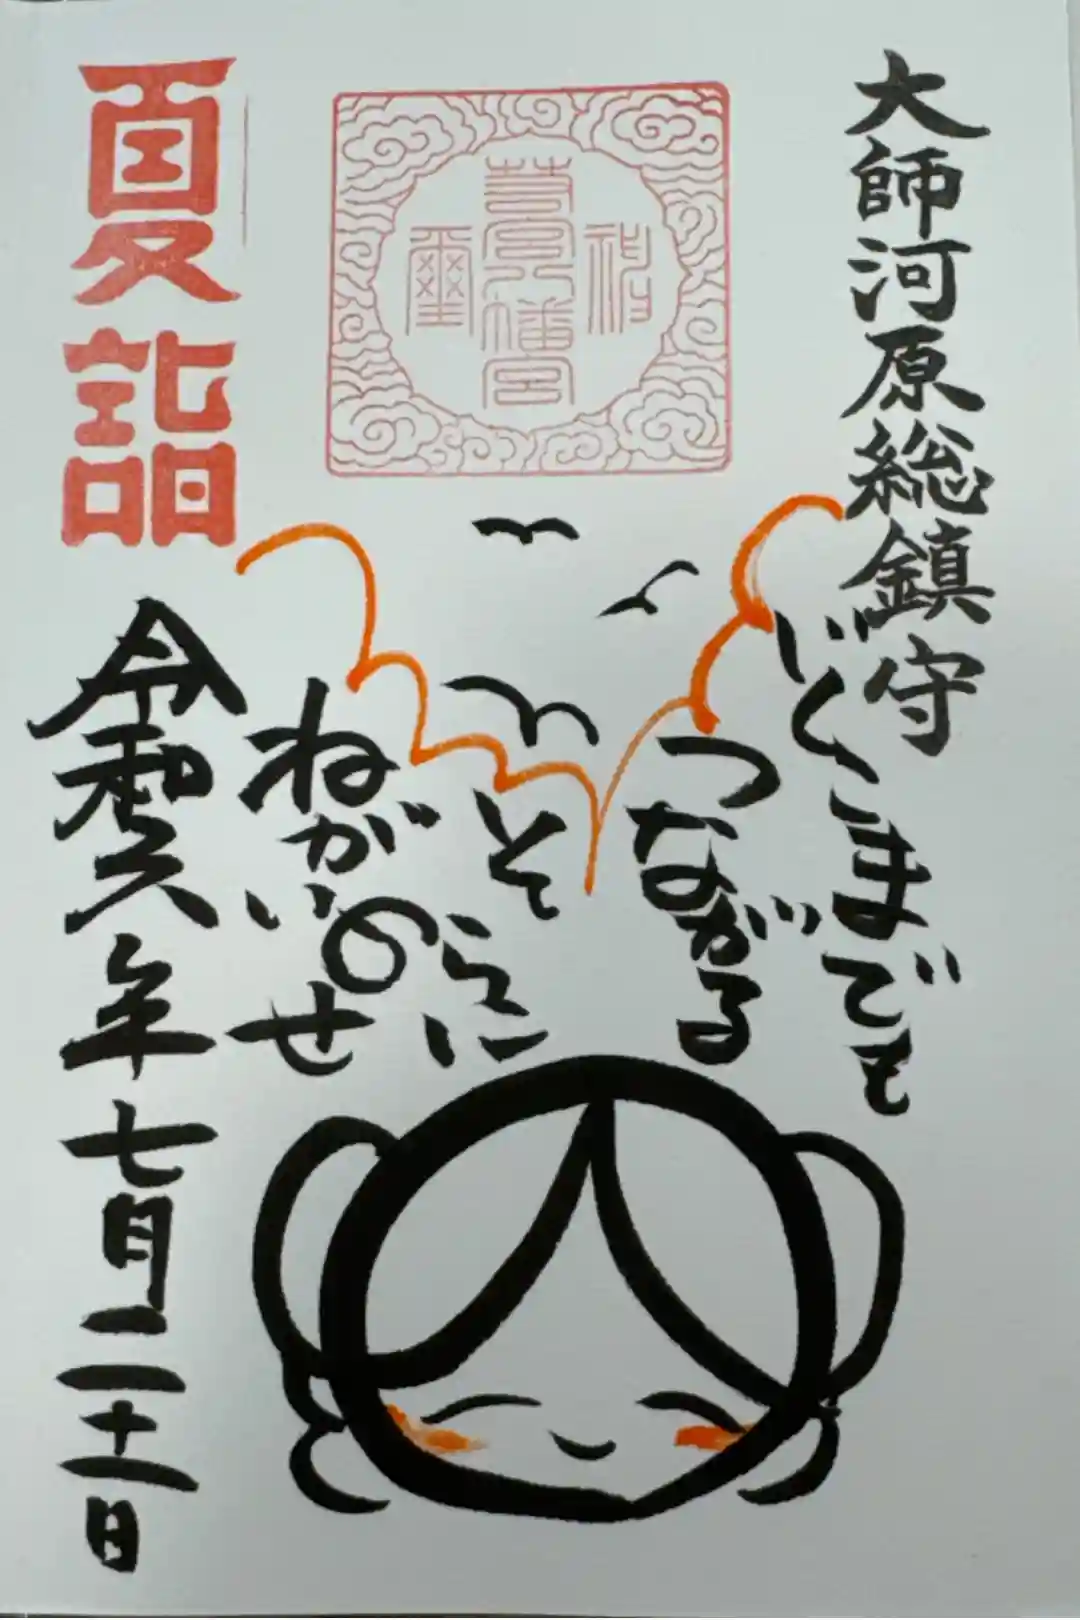 大師河原総鎮守
神
若宮八幡宮
璽
どこまでも
つながる
そらに
ねがいのせ
夏詣
令和六年七月二十一日